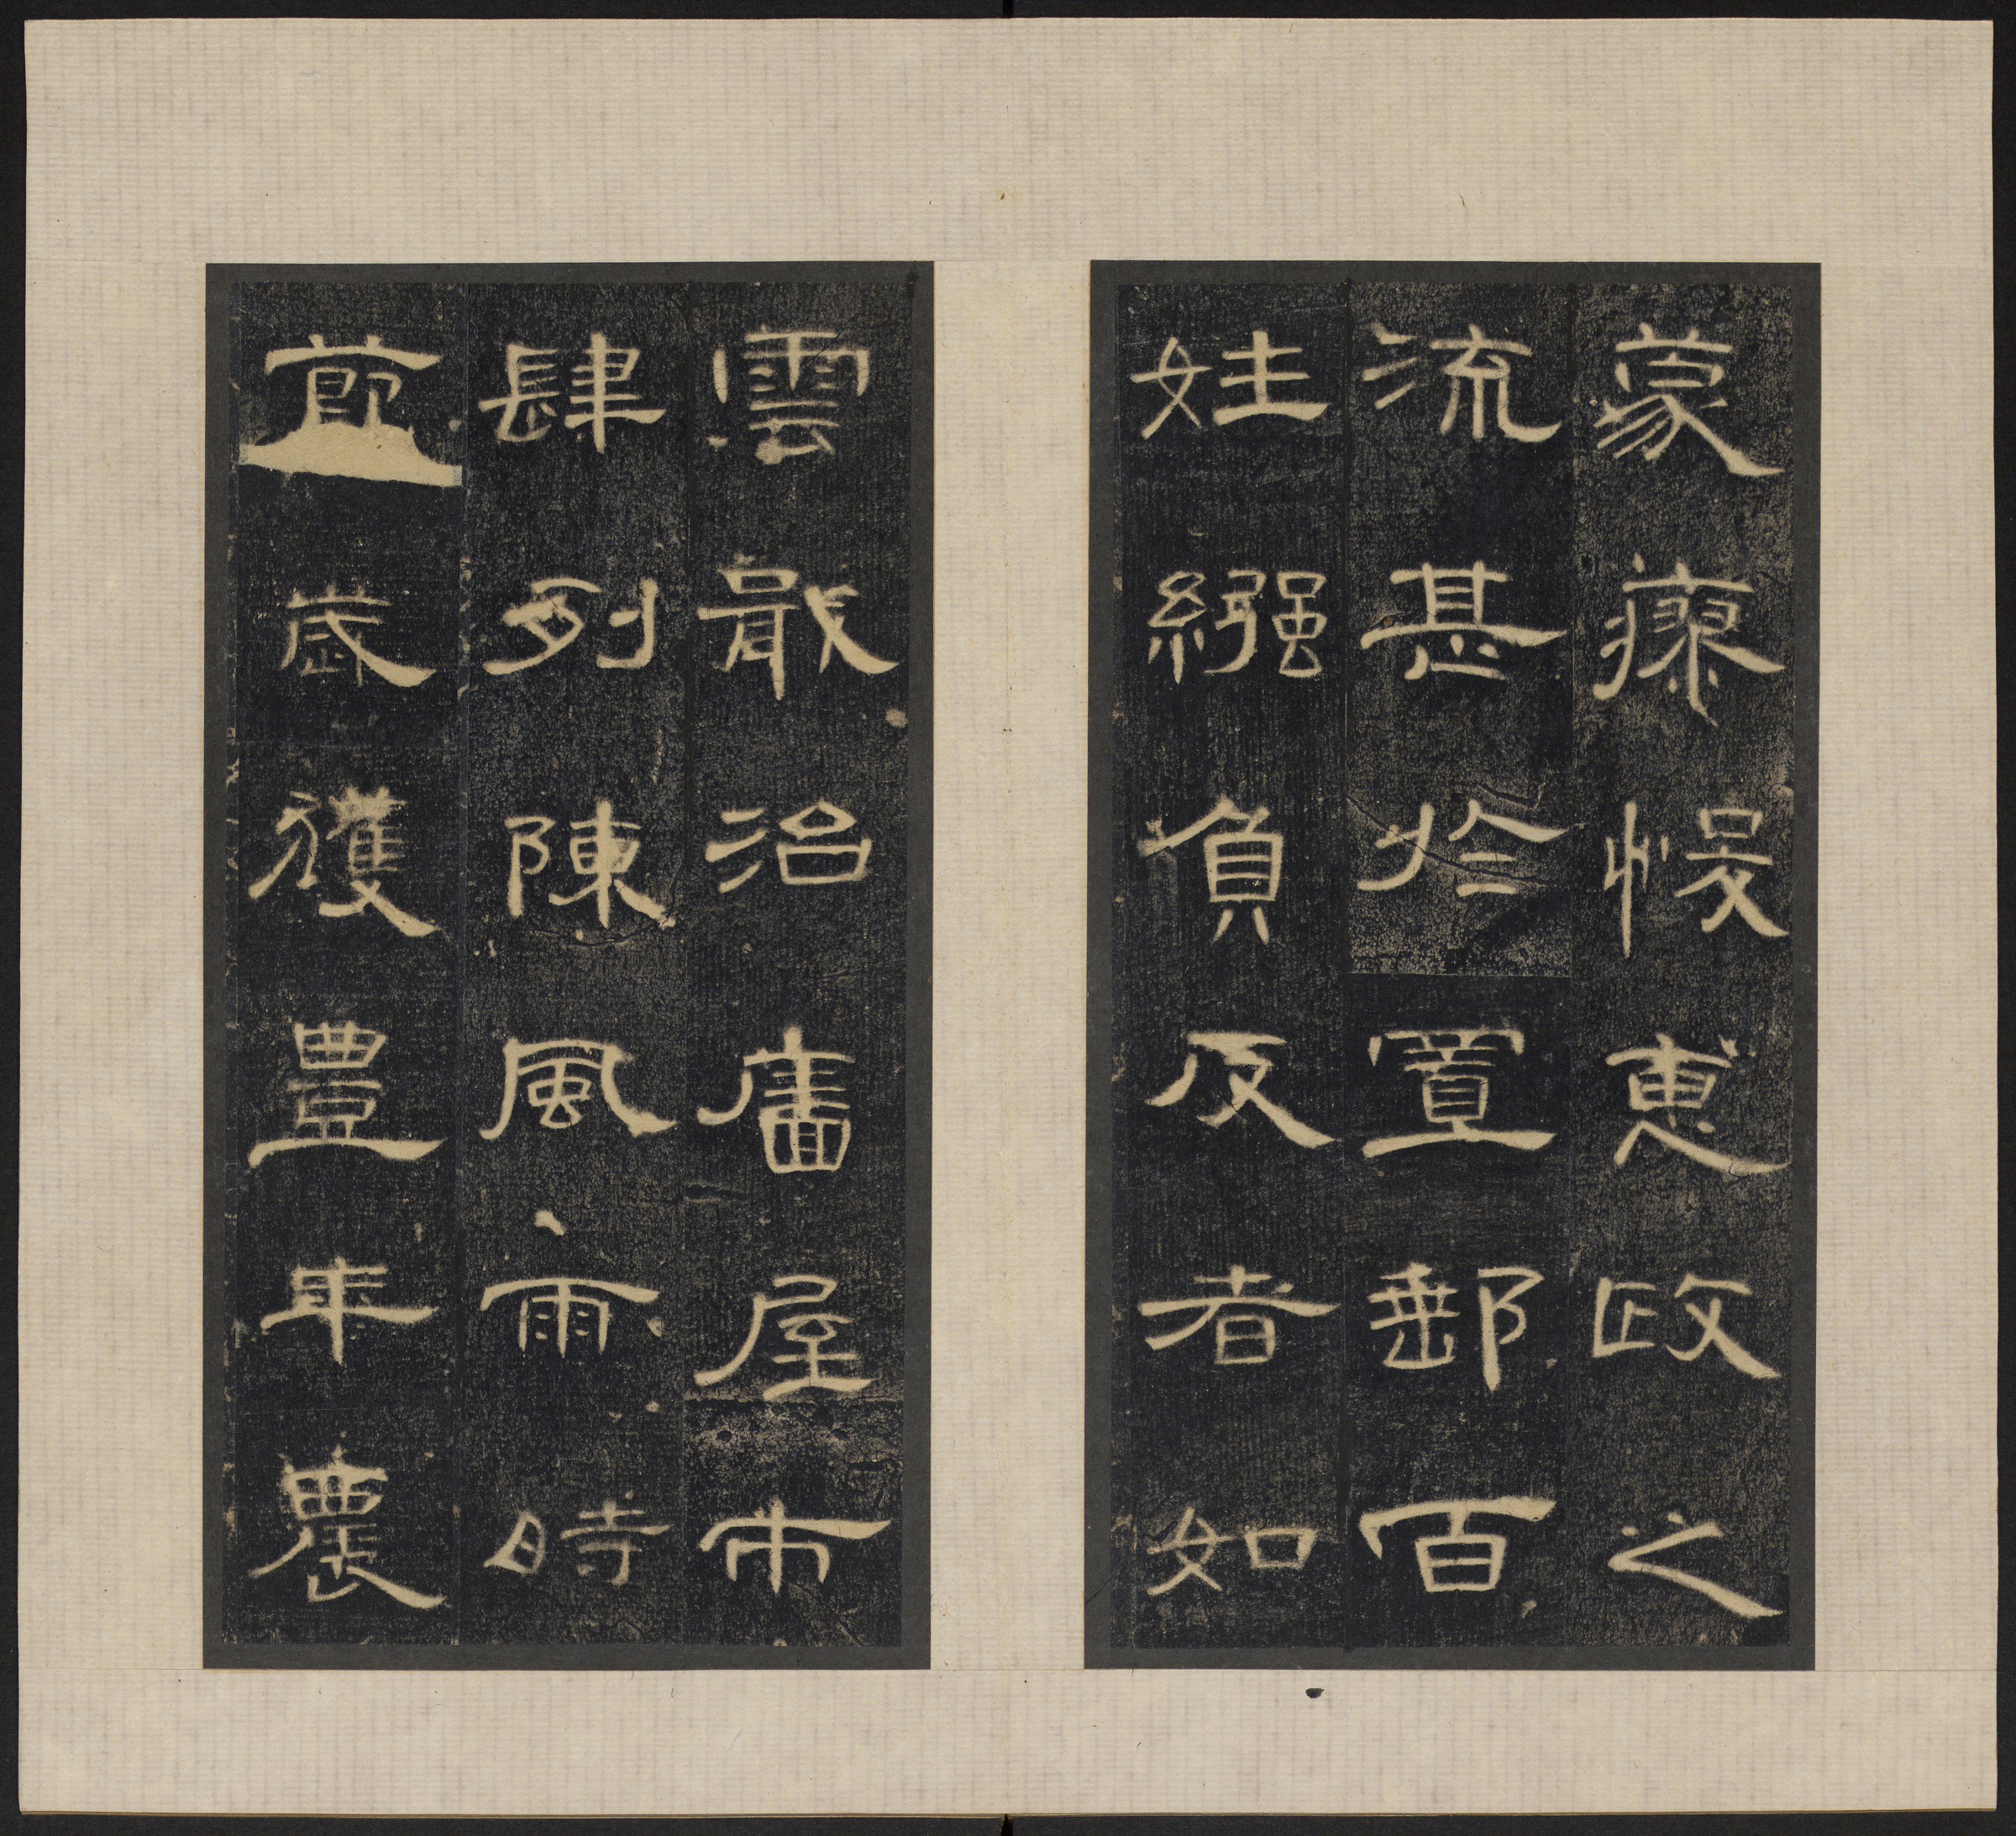 蒙瘳悮惠政之
流甚於置郵百
姓繦負反者如
雲戢治廧屋市
肆列陳風雨時
節歲獲豐年農